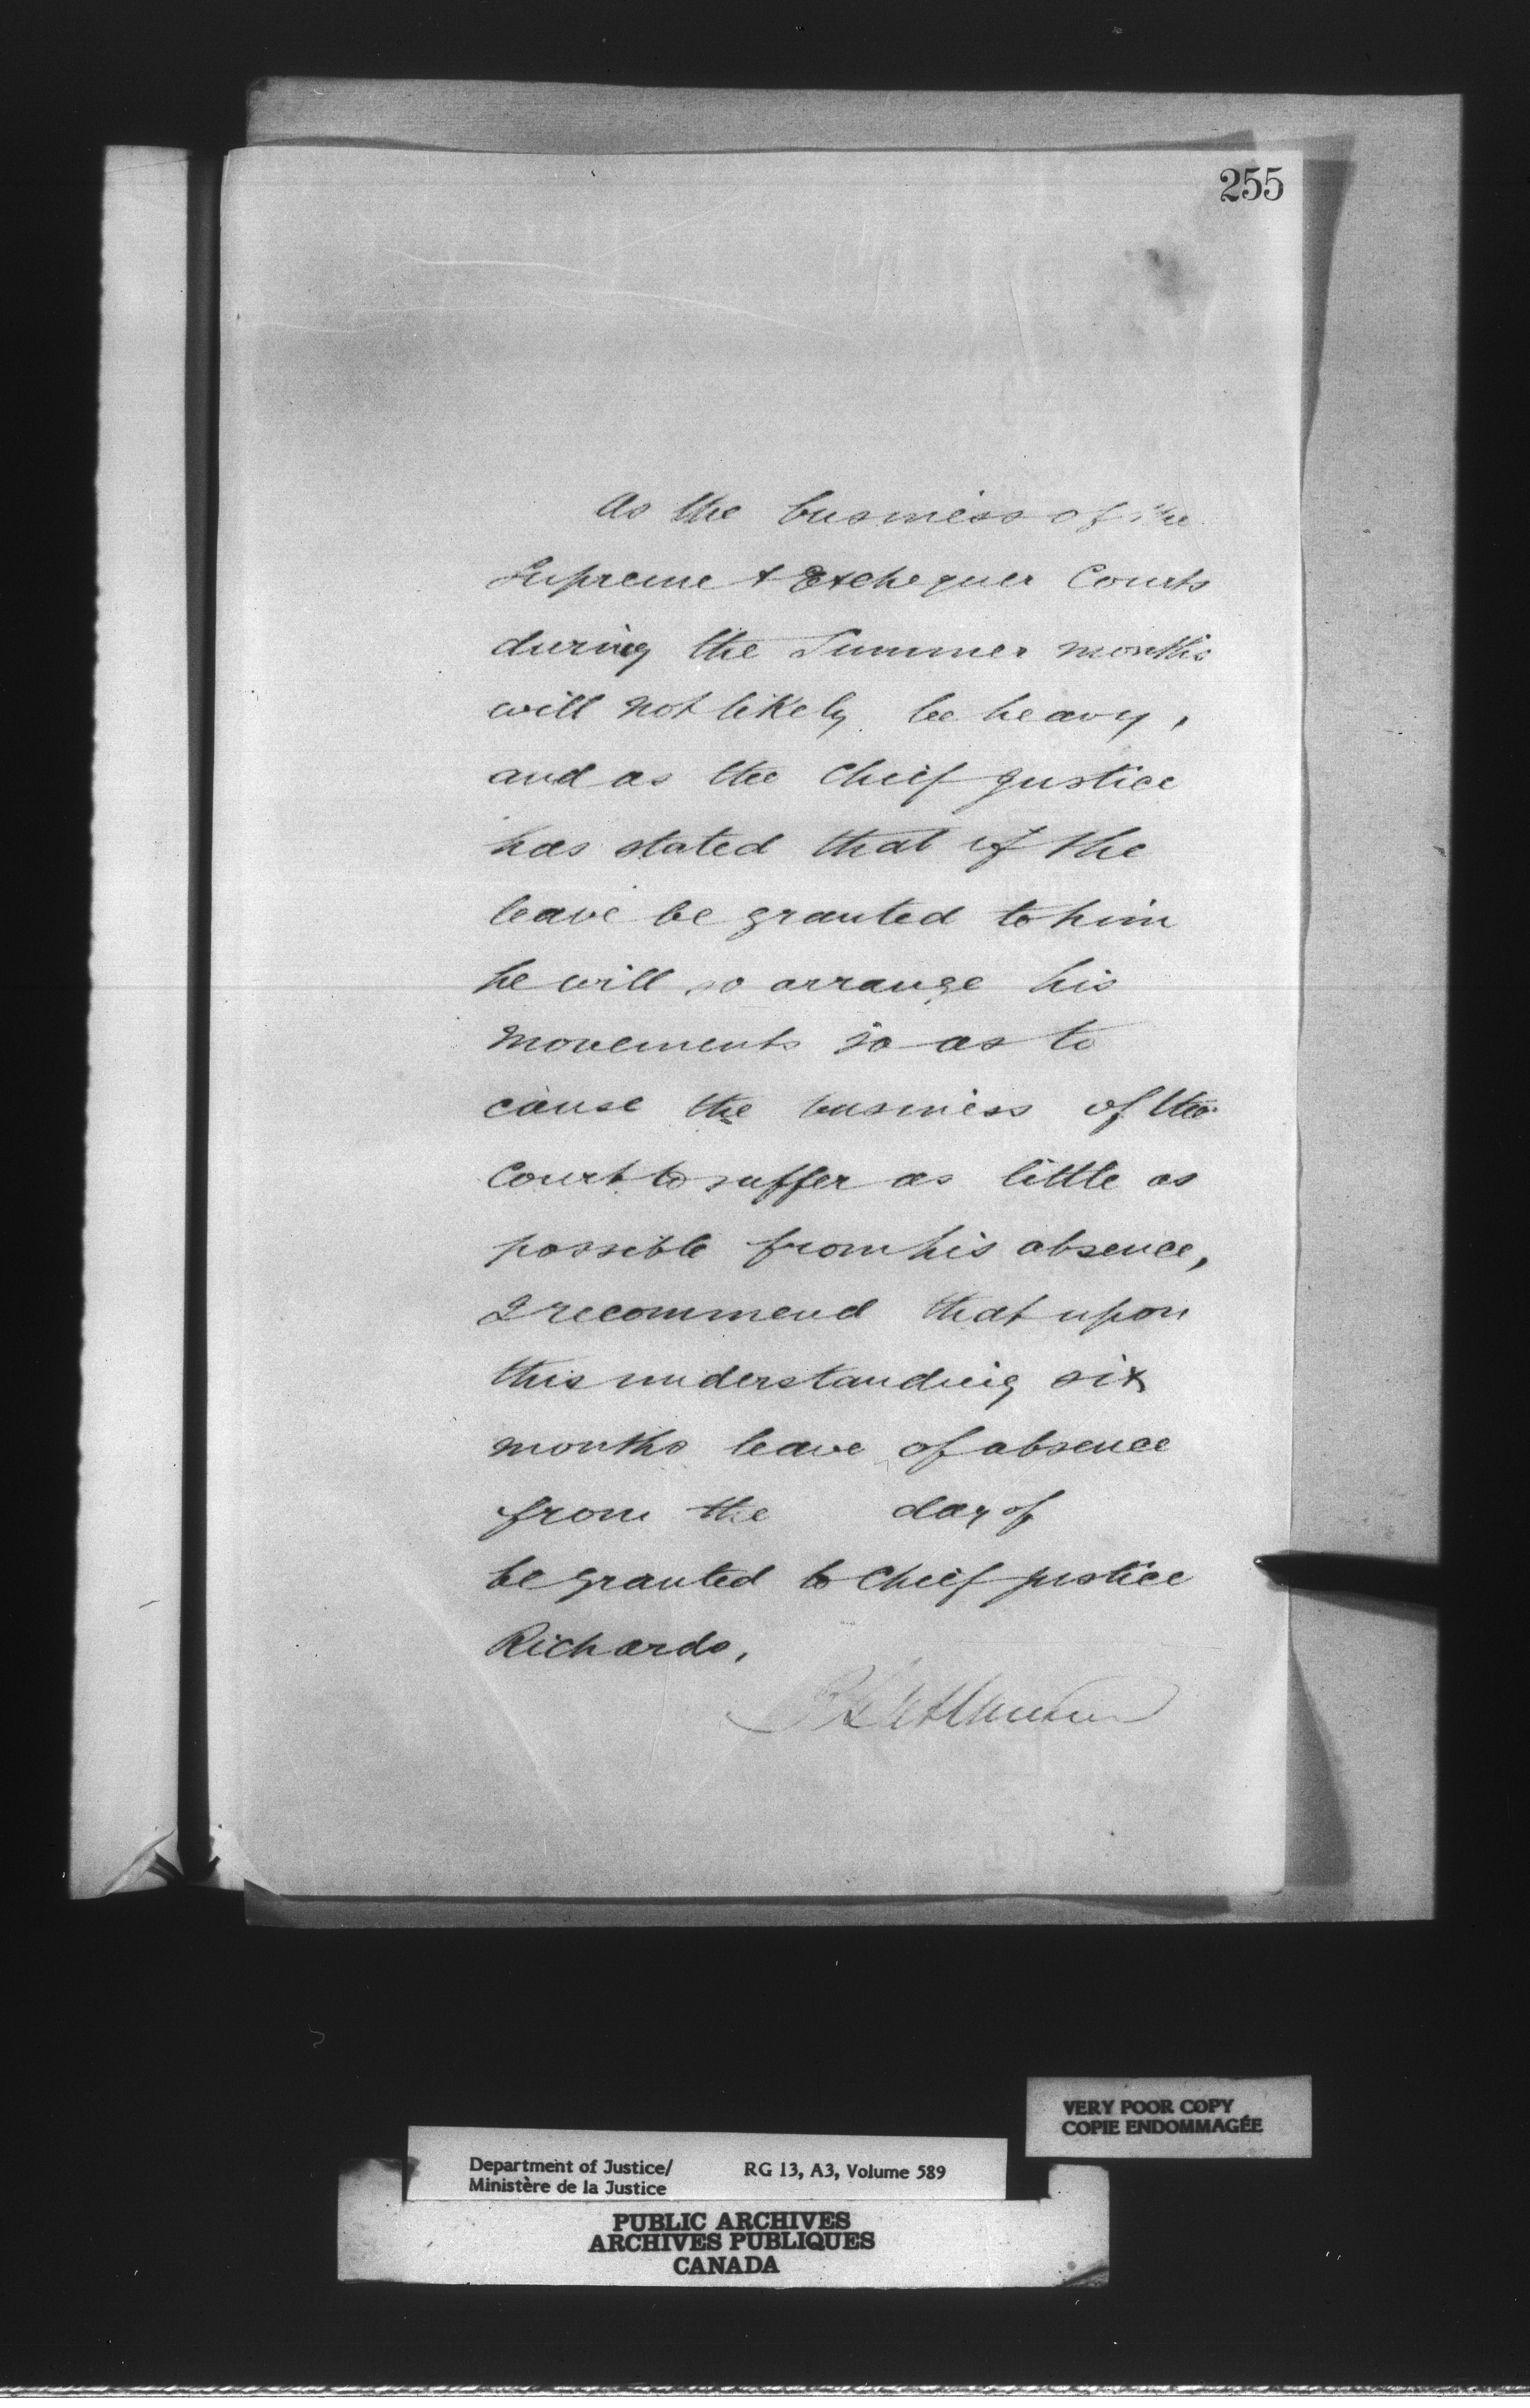 255
As the business of the
Supreme & Exchequer Courts
during the Summer months
will not likely be heavy,
and as the Cheif Justice
has stated that if the
leave be granted to him
he will so arrange his
movements so as to
cause the business of the
Court to suffer as little as
possible from his absence,
I recommend that upon
this understanding six
months leave of absence
from the day of
be granted to Cheif Justice
Richards.
VERY POOR COPY
COPIE ENDOMMAGÉE
Department of Justice/ RG 13, A3, Volume 589
Ministère de la Justice
PUBLIC ARCHIVES
ARCHIVES PUBLIQUES
CANADA